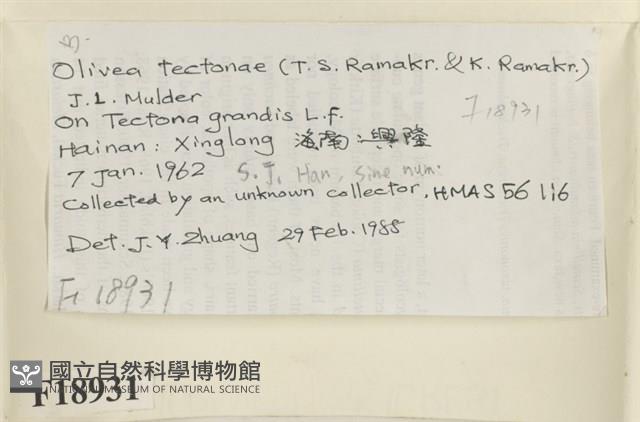 Olivea tectonae (T. S. Ramakr. & K. Ramakr.)
J. L. Mulder
F18931
On Tectona grandis L.f.
Hainan: Xinglong 海南:興隆
7 Jan. 1962 S. J. Han, sine num.
Collected by an unknown collector, HMAS 56116
Det. J. Y. Zhuang 29 Feb. 1988
F18931
國立自然科學博物館
NATIONAL MUSEUM OF NATURAL SCIENCE
F18931